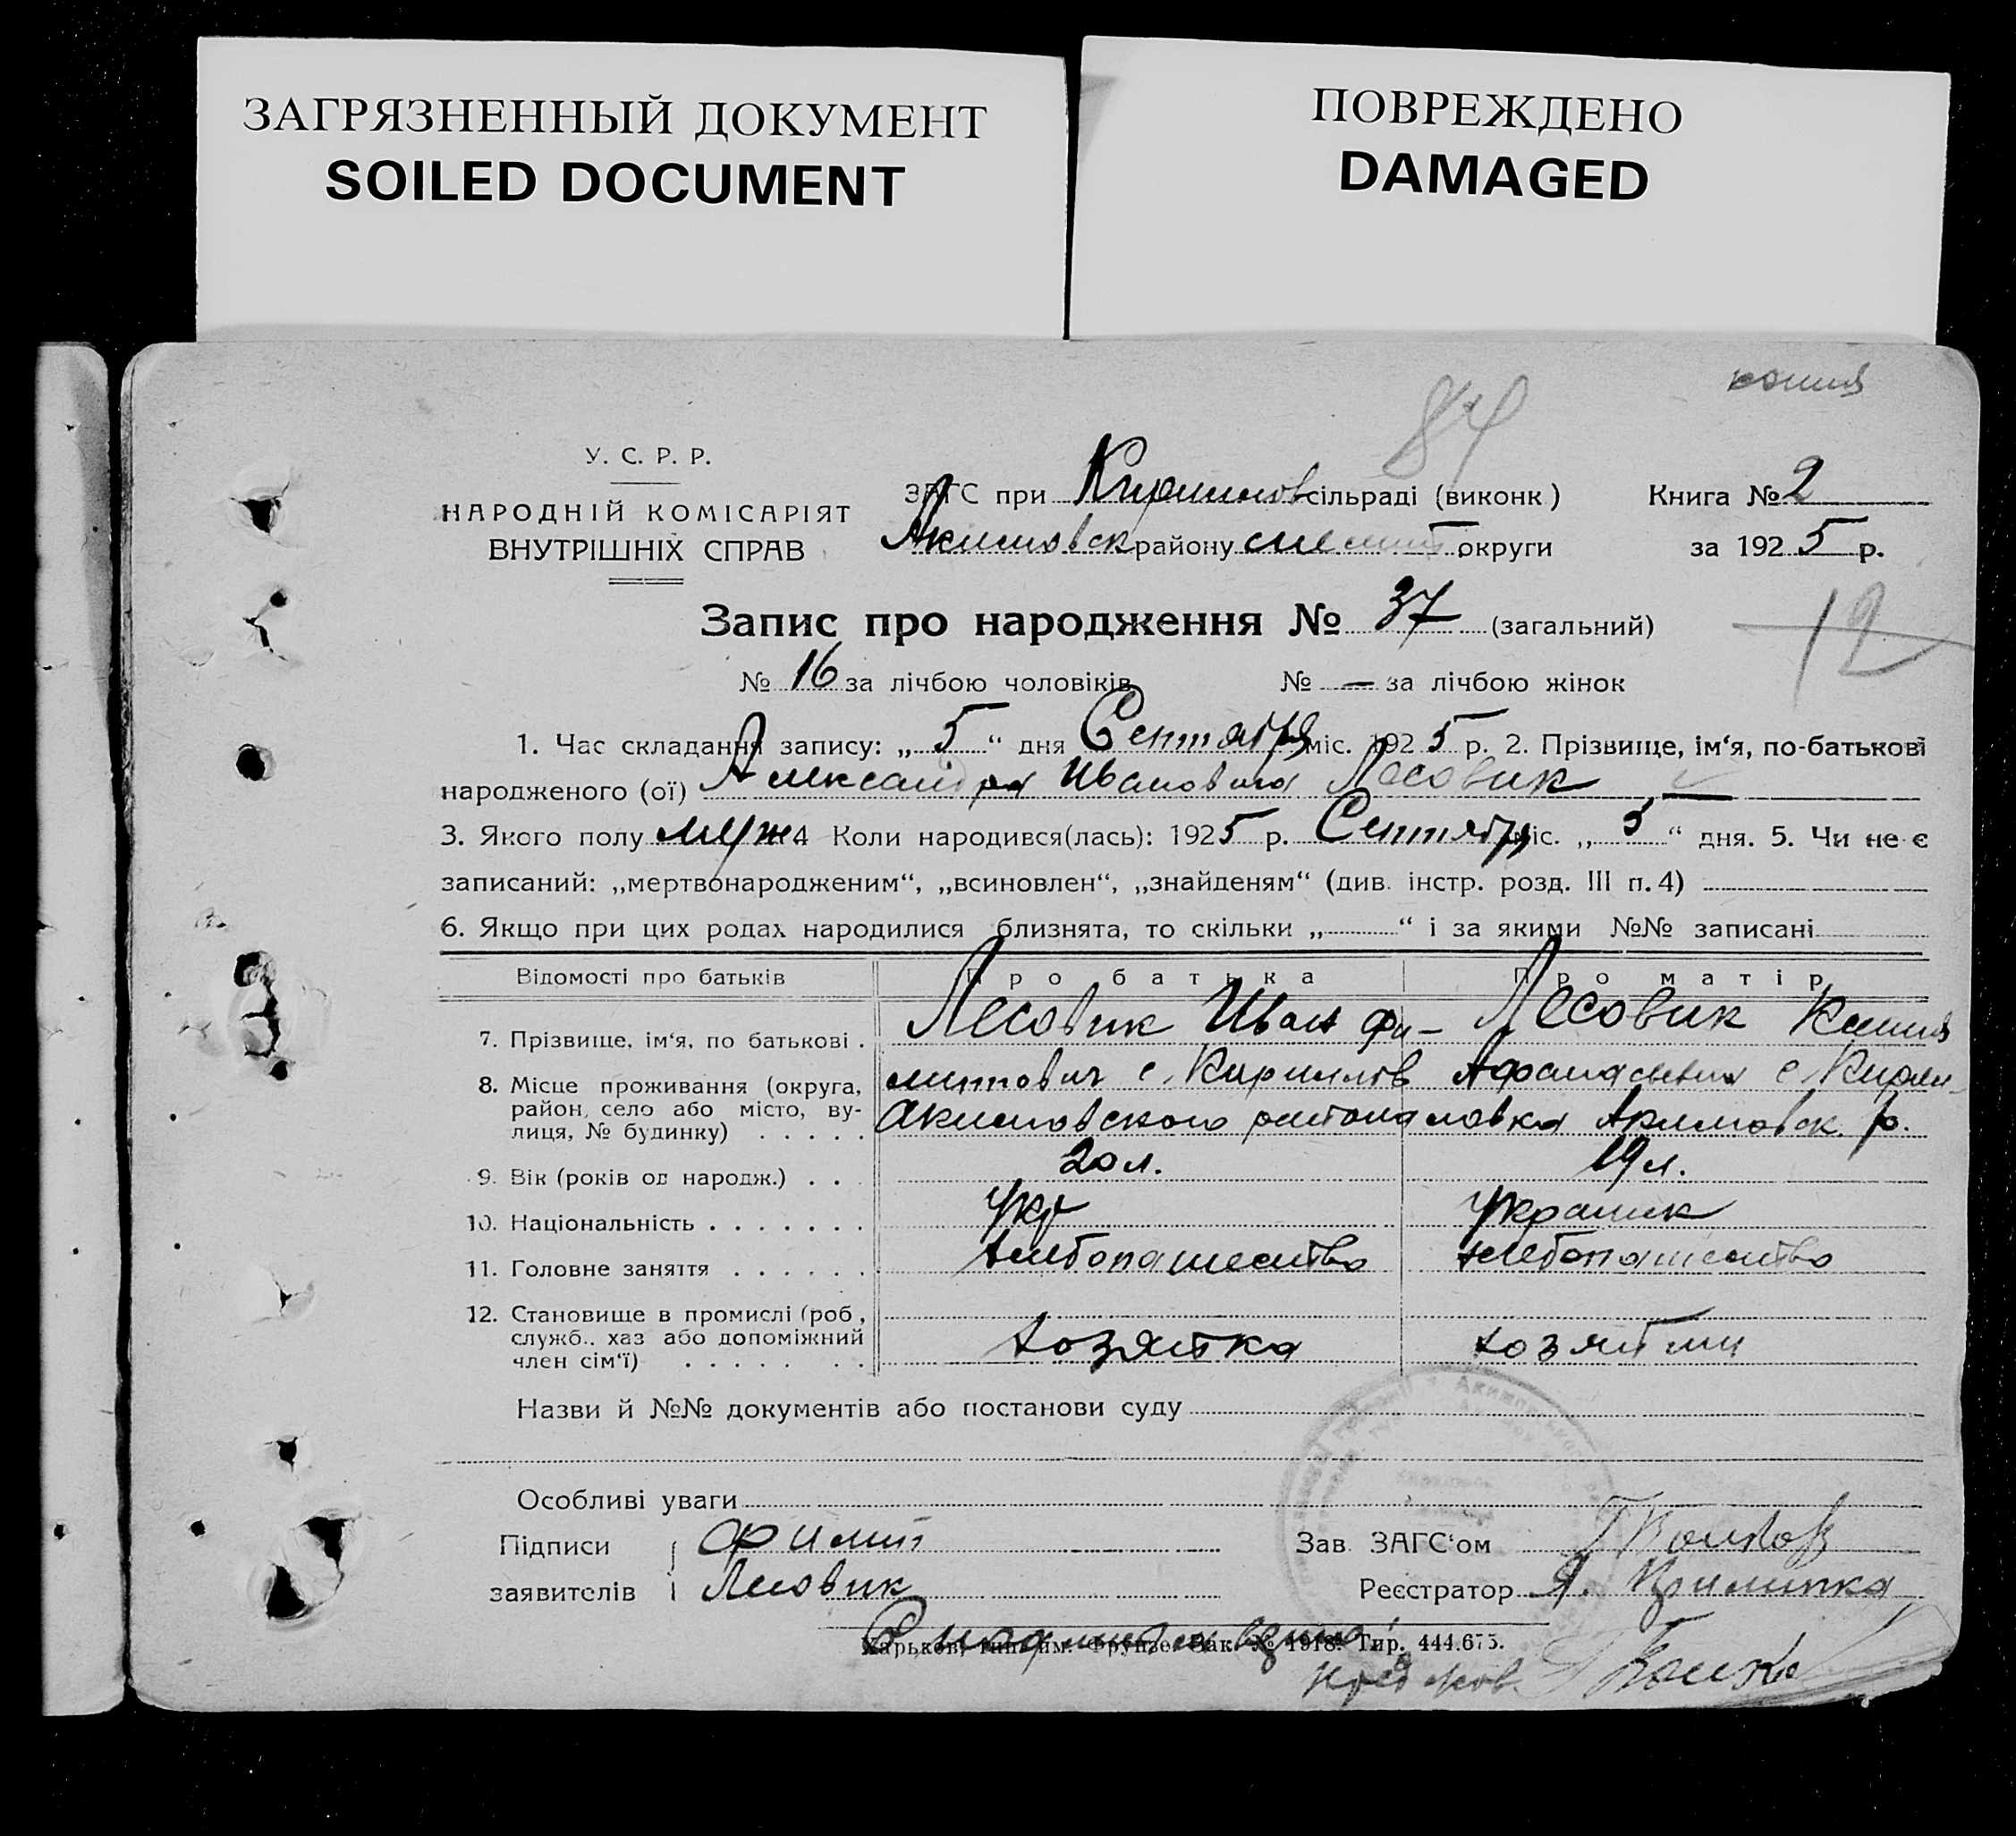 ЗАГРЯЗНЕННЫЙ ДОКУМЕНТ
SOILED DOCUMENT
ПОВРЕЖДЕНО
DAMAGED
копия
84
У. С. Р. Р.
НАРОДНІЙ КОМІСАРІЯТ
ВНУТРІШНІХ СПРАВ
ЗАГС при Кирилловсільраді (виконк)
Акимовск району Мелит округи
Книга № 2
за 1925 р.
Запис про народження № 37 (загальний)
12
№ 16 за лічбою чоловіків № — за лічбою жінок
1. Час складання запису: „5“ дня Сентября міс. 1925 р. 2. Прізвище, ім‘я, по-батькові
народженого (ої) Александра Ивановича Лесовик
3. Якого полу муж 4 Коли народився(лась): 1925 р. Сентября міс. „5“ дня. 5. Чи не є
записаний: „мертвонародженим“, „всиновлен“, „знайденям“ (див. інстр. розд. III п. 4)
6. Якщо при цих родах народилися близнята, то скільки „ “ і за якими №№ записані
Відомості про батьків Про батька Про матір
7. Прізвище, ім‘я, по батькові . Лесовик Иван Фи- Лесовик
8. Місце проживання (округа, липпович с. Кириллов Афанасьевна с. Кирил-
район, село або місто, ву- Акимовского района ловка Акимовск. р.
лиця, № будинку) . . . . .
9. Вік (років од народж.) . . . 20 л. 19 л.
10. Національність . . . . . . . Укр Украинк
11. Головне заняття . . . . . . хлебопашество хлебопашество
12. Становище в промислі (роб.,
служб.. хаз або допоміжний хозяйка
член сім‘ї) . . . . . . .
Назви й №№ документів або постанови суду
Особливі уваги
Підписи Филип
заявителів Лесовик
Зав. ЗАГС‘ом
Реєстратор Я.
Харьков, тип. им. Фрунзе. Зак. № 1918. Тир. 444.675.